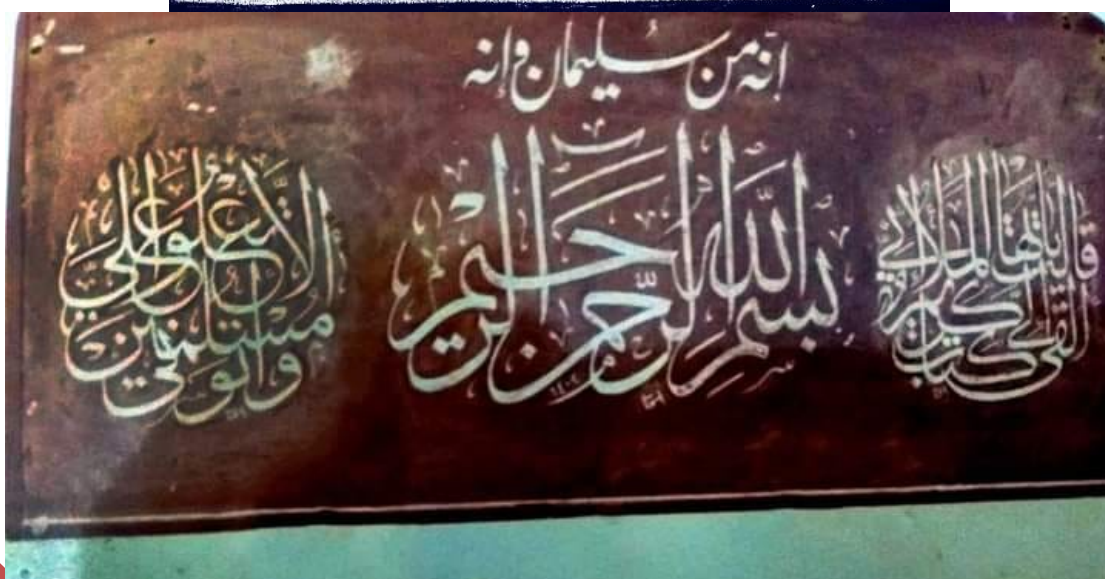 قالت يا أيها الملأ إني
ألقي إلي كتاب كريم
انه من سليمان وانه
بسم الله الرحمن الرحيم
١٤٠٤
ألا تعلوا علي
وأتوني مسلمين